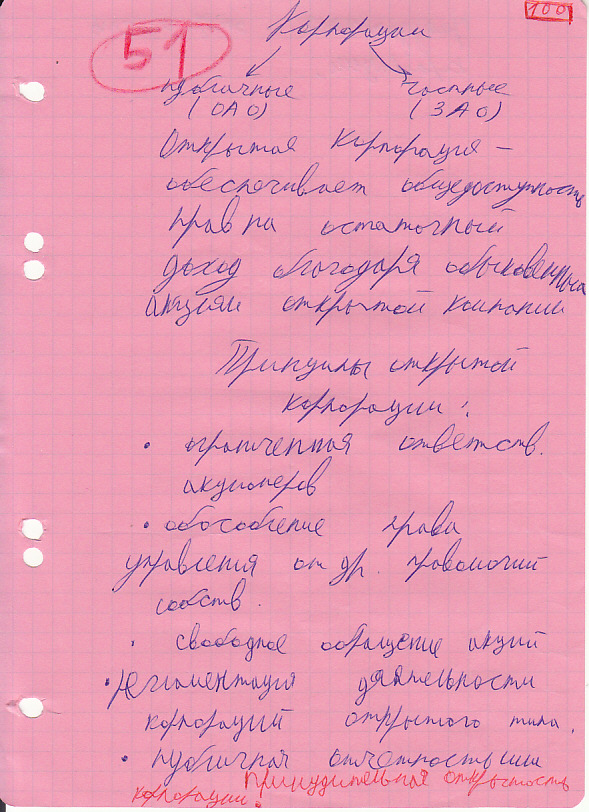 100
51
Корпорации
публичные частные
(ОАО) (ЗАО)
Открытая корпорация —
обеспечивает общедоступность
прав на остаточный
доход благодаря обыкновенным
акциям открытой компании
Принципы открытой
корпорации:
• ограниченная ответств.
акционеров
• обособление права
управления от др. правомочий
собств.
• свободное обращение акций
• регламентация деятельности
корпораций открытого типа.
• публичная отчетность или
принудительная открытость
корпорации.